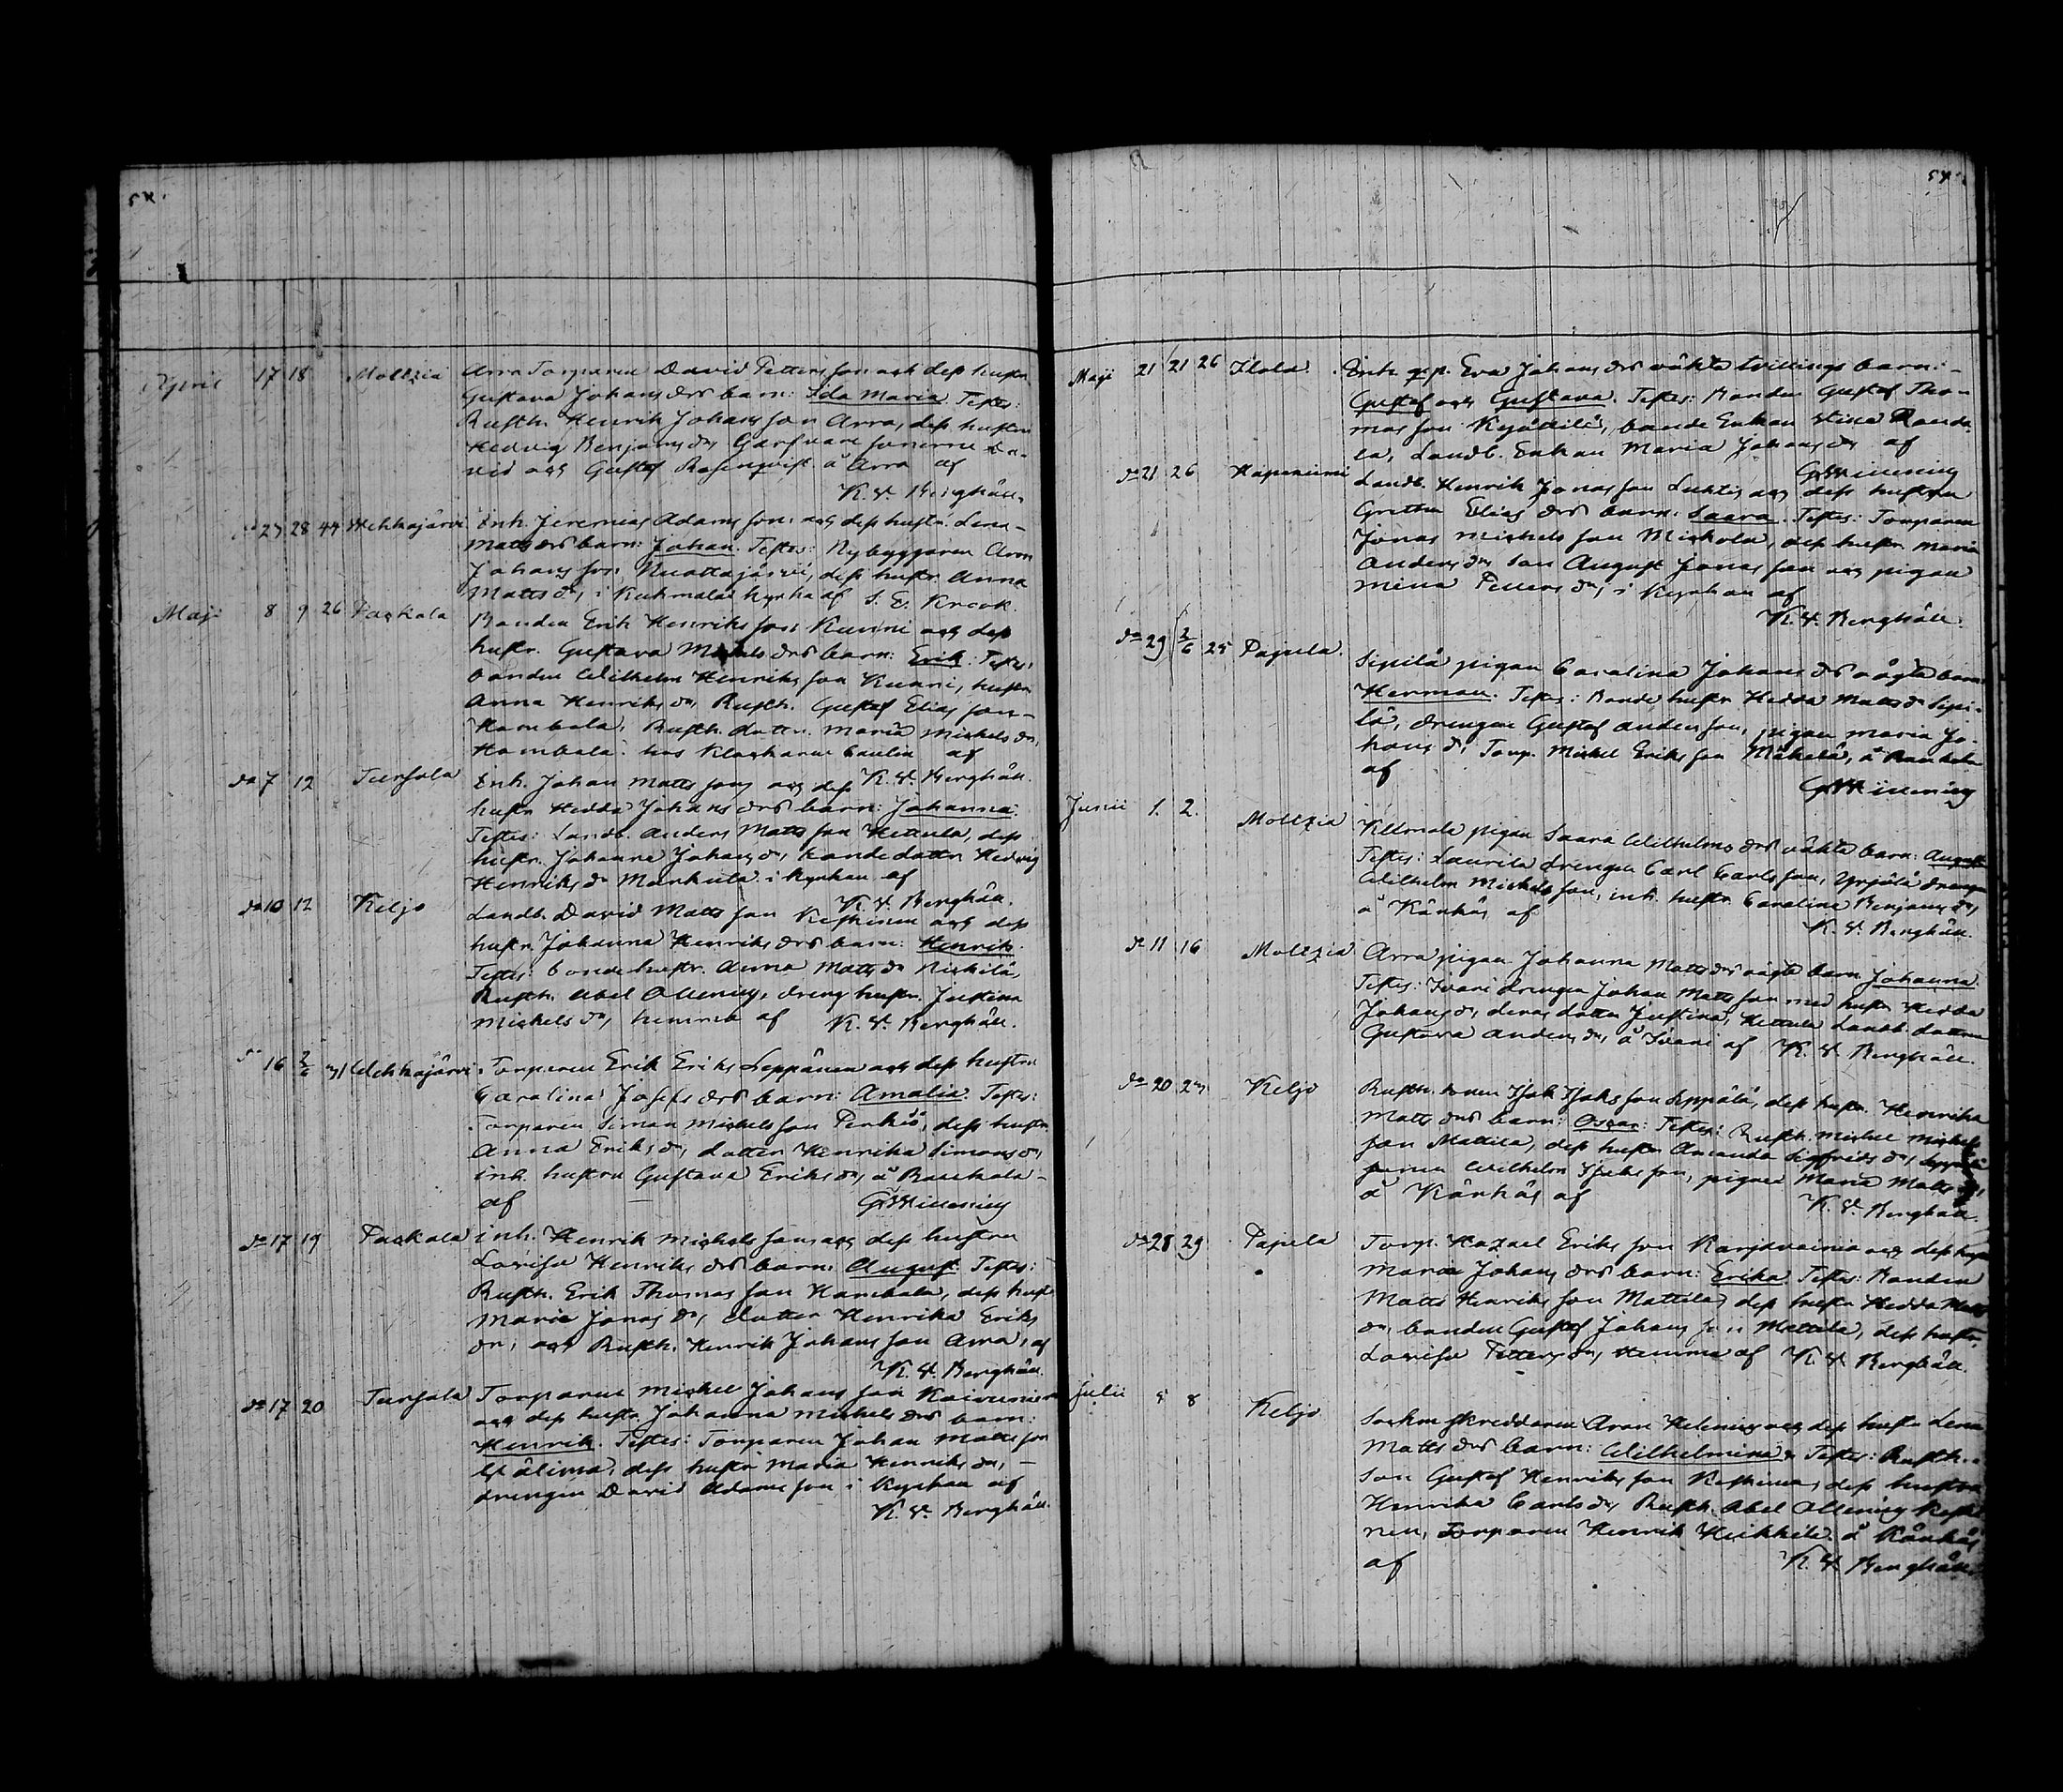 54.
April 17 18 Moltzia Arra Torparen David Petters son och dess hustru
Gustava Johans drs barn: Ida Maria. Testes:
Rusth. Henrik Johans son Arra, dess hustru
Hedvig Benjams dr, Garfvare sönerne Da-
vid och Gustaf Rosenqvist å Arra af
K. V. Berghäll.
do 27 28 44 Wehkajärvi Inh. Jeremias Adams son och dess hustr. Lena
Matts drs barn: Johan. Testes: Nybyggaren Aron
Johans son, dess hustr. Anna
Matts dr, i Kuhmalax kyrka af S. E. Krook
Maji 8 9 26 Packala Bonden Erik Henriks son Kunni och dess
hustr. Gustava Michels drs barn: Erik. Testes:
bonden Wilhelm Henriks son Kunni, hustr.
Anna Henriks dr, Rusth. Gustaf Elias son
Hambala, Rusth. dottr. Maria Michels dr,
Hambala. hos Klockaren Caulin af
K. V. Berghäll.
do 7 12 Tursola Inh. Johan Matts son och dess
hustr Hedda Johans drs barn: Johanna.
Testes: Landb. Anders Matts son Hettula, dess
hustr. Johanna Johans dr, bondedottr Hedvig
Henriks dr Markula i kyrkan af
K. V. Berghäll.
do 10 12 Keljo Landb. David Matts son Keskinen och dess
hustr. Johanna Henriks drs barn: Henrik.
Testes: bondehustr. Anna Matts dr Nickilä,
Rusth. Abel Allenius, dreng hustr. Justina
Michels dr, hemma af K. V. Berghäll.
do 16 2/6 31 Wehkajärvi Torparen Erik Eriks Leppänen och dess hustru
Carolina Josefs drs barn: Amalia. Testes:
Torparen Simon Michels son Penkiö, dess hustr.
Anna Eriks dr, dotter Henrika Simons dr,
inh. hustru Gustava Eriks dr, å Rauhala
af
do 17 19 Packala inh. Henrik Michels son och dess hustru
Lovisa Henriks drs barn: August. Testes:
Rusth. Erik Thomas son Hambala, dess hustr
Maria Jonas dr, dotter Henrika Eriks
dr, och Rusth. Henrik Johans son Arra, af
K. V. Berghäll.
do 17 20 Tursola Torparen Michel Johans son
och dess hustr Johanna Michels drs barn:
Henrik. Testes: Torparen Johan Matts son
Wälimä, dess hustr Maria Henriks dr,
drengen David Adams son i kyrkan af
K. V. Berghäll.
54.
Maji 21 21 26 Ilola Inh. Eva Johans drs oäkta tvillings barn:
Gustaf och Gustava. Testes: Bonden Gustaf Tho-
mas son, bonde Enkan Stina
Landb. Enkan Maria Johans dr af
do 21 26 Hapeniemi Landb. Henrik Jonas son Luhtis och dess hustru
Gretha Elias drs barn: Saara. Testes: Torparen
Jonas Michels son Mickola, dess hustr Maria
Anders dr, son August Jonas son och pigan
Mina Petters dr, i kyrkan af
K. V. Berghäll.
do 29 2/6 25 Pajula Sipilä pigan Carolina Johans drs oägta barn
Herman. Testes: Bonde hustr Hedda Matts dr Sipi-
lä, drengen Gustaf Anders son, pigan Maria Jo-
hans dr, Torp. Michel Eriks son Mäkelä, å
af
Junii 1. 2. Moltzia pigan Saara Wilhelms drs oäkta barn: August
Testes: Laurila drengen Carl Carls son, Yrjölä drengen
Wilhelm Michels son, inh. hustr Carolina Benjams dr,
å Kånkås af
K. V. Berghäll.
do 11 16 Moltzia Arra pigan Johanna Matts drs oägta barn Johanna
Testes: Ivari drengen Johan Matts son med hustr Hedda
Johans dr, deras dotter Justina, Hettula Landb. dottren
Gustava Anders dr, å Ivari af K. V. Berghäll.
do 20 23 Keljo Rusth. sonen Isak Isaks son Seppälä, dess hustr. Henrika
Matts drs barn: Oscar. Testes: Rusth. Michel Michels
son Mattila, dess hustr Amanda Sigfrids dr,
Wilhelm Isaks son, pigan Maria Matts dr,
å Kånkås af
K. V. Berghäll.
do 28 29 Pajula Torp. Hazael Eriks son Karjavainio och dess hustr
Maria Johans drs barn: Erika. Testes: Bonden
Matts Henriks son Mattila, dess hustr Hedda Matts
dr, bonden Gustaf Johans son Mattila, dess hustr
Lovisa Petters dr, hemma af K. V. Berghäll.
Julii 5 8 Keljo Sockne skreddaren Aron Helenius och dess hustr Lena
Matts drs barn: Wilhelmina. Testes: Rusth.
son Gustaf Henriks son Keskinen, dess hustru
Henrika Carls dr, Rusth. Abel Allenius Keski-
nen, Torparen Henrik Heikkilä å Kånkås
af K. V. Berghäll.